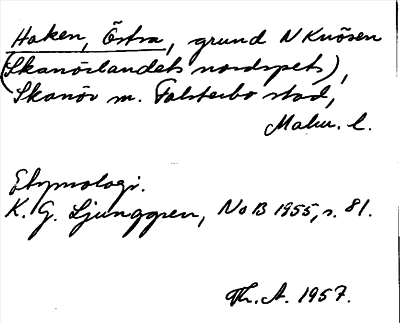 Haken, Östra, grund N Knösen
(Skanörslandets nordspets),
Skanör m. Falsterbo stad,
Malm. l.
Etymologi.
K. G. Ljunggren, NoB 1955, s. 81.
Th. A. 1957.